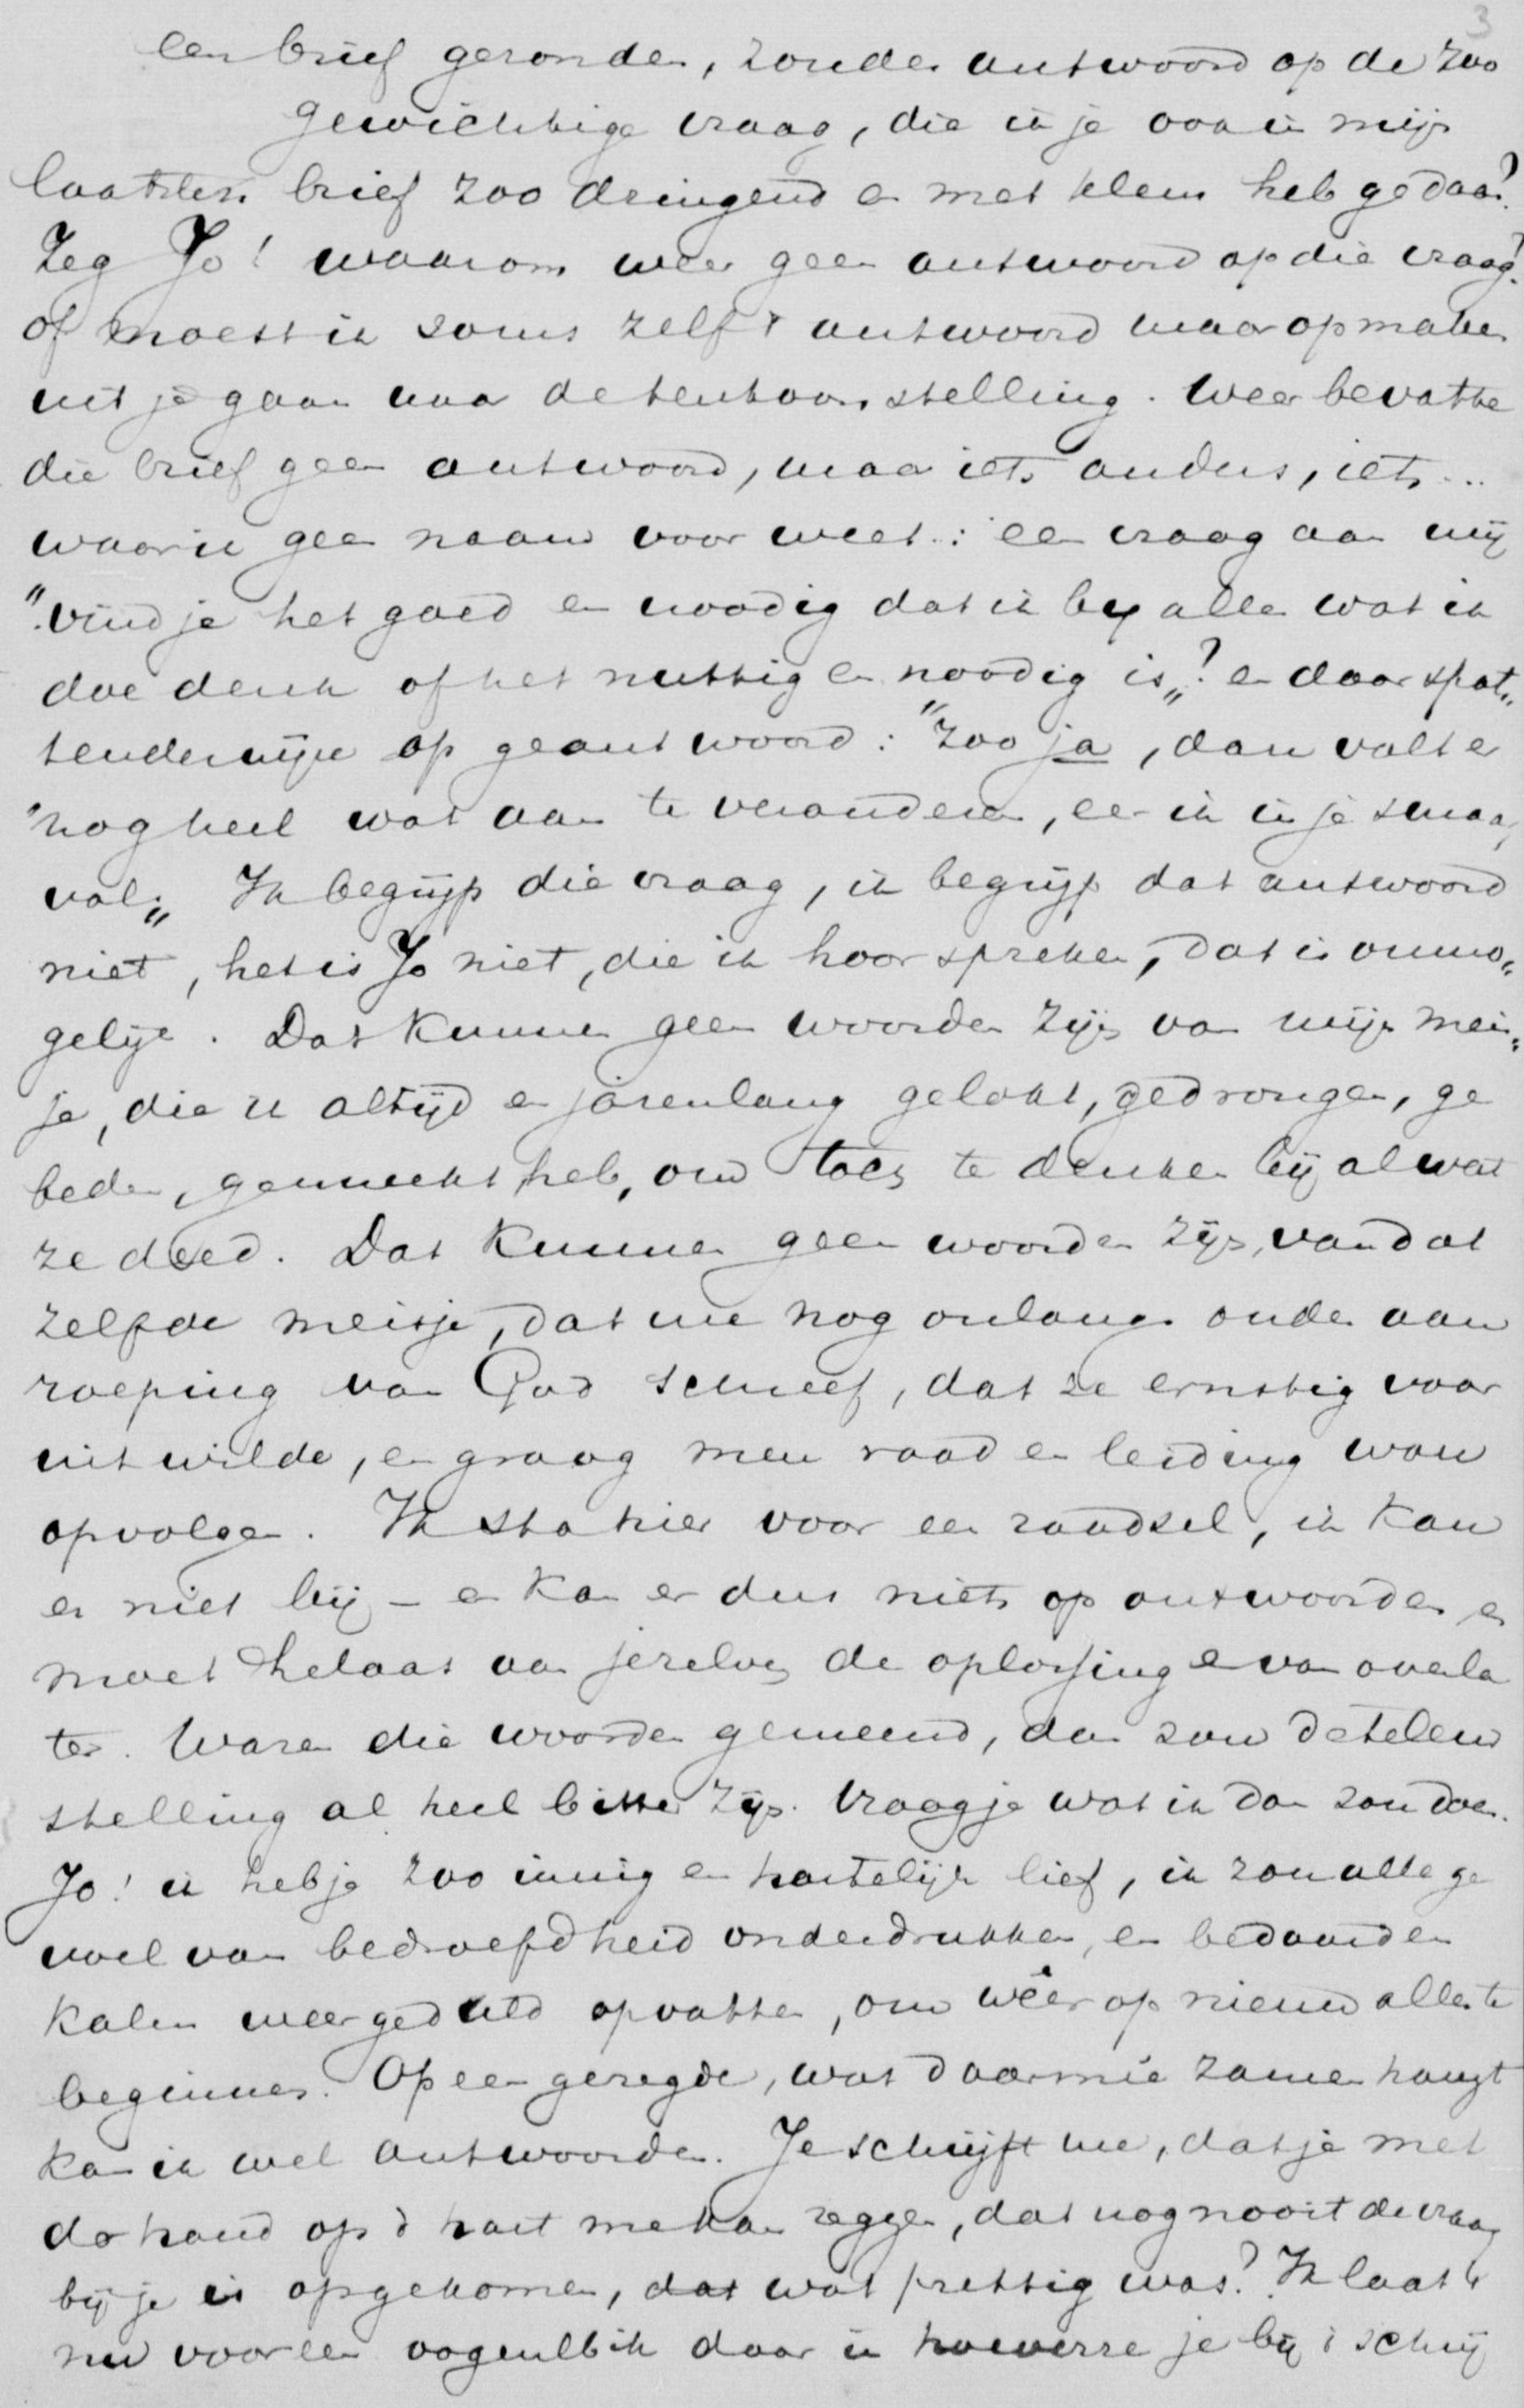 3
een brief gezonden, zonder antwoord op de zoo
gewichtige vraag, die ik je ook in mijn
laatsten brief zoo dringend en met klem heb gedaan?
Zeg Jo! waarom weer geen antwoord op die vraag?
of moest ik soms zelf 't antwoord maar opmaken
uit je gaan naar de tentoonstelling. Weer bevatte
die brief geen antwoord, maar iets anders, iets...
waar ik geen naam voor weet: een vraag aan mij
"vind je het goed en noodig dat ik by alles wat ik
doe denk of het nuttig en noodig is"? en daar spot„
tenderwijze op geantwoord: "zoo ja, dan valt er
"nog heel wat aan te veranderen, eer ik in je smaak
val„ Ik begrijp die vraag, ik begrijp dat antwoord
niet, het is Jo niet, die ik hoor spreken, dat is onmo„
gelijk. Dat kunnen geen woorden zijn van mijn meis„
je, die ik altijd en jarenlang gelokt, gedrongen, ge
beden, gesmeekt heb, om toch te denken bij al wat
ze deed. Dat kunnen geen woorden zijn, van dat
zelfde meisje, dat me nog onlangs onder aan
roeping van God schreef, dat ze ernstig voor
uit wilde, en graag men raad en leiding wou
opvolgen. Ik sta hier voor een raadsel, ik kan
er niet bij – en kan er dus niets op antwoorden en
moet helaas aan jezelve de oplossing ervan overla
ten. Waren die woorden gemeend, dan zou de teleur
stelling al heel bitter zijn. Vraag je wat ik dan zou doen.
Jo! ik heb je zoo innig en hartelijk lief, ik zou alle ge
voel van bedroefdheid onderdrukken, en bedaard en
kalm weer geduld opvatten, om wêer op nieuw alles te
beginnen. Op een gezegde, wat daarmeê zamen hangt
kan ik wel antwoorden. Je schrijft me, dat je met
de hand op 't hart me kan zeggen, dat nog nooit de vraag
bij je is opgekomen, dat wat prettig was? Ik laat 't
nu voor een oogenblik daar in hoeverre je bij 't schrij